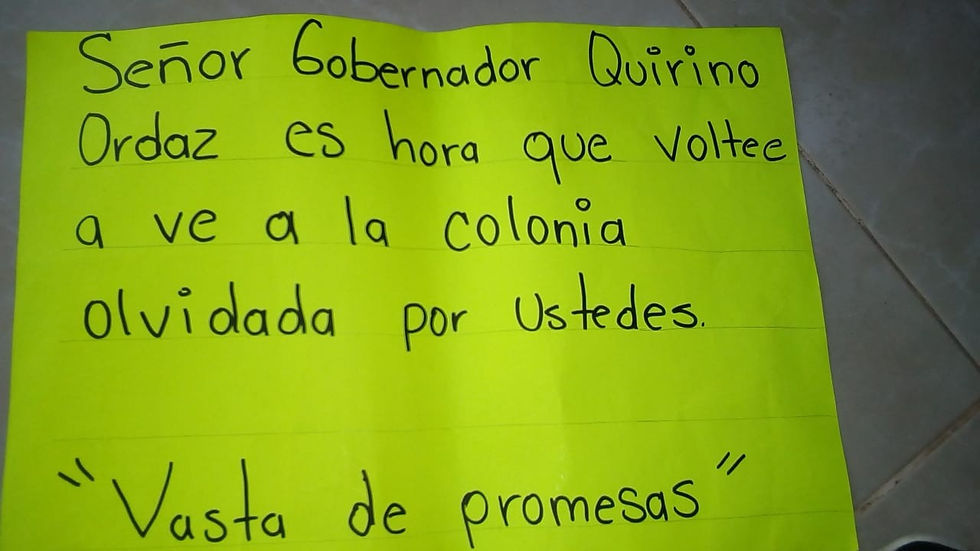 Señor Gobernador Quirino
Ordaz es hora que voltee
a ve a la colonia
olvidada por ustedes.
"Vasta de promesas"